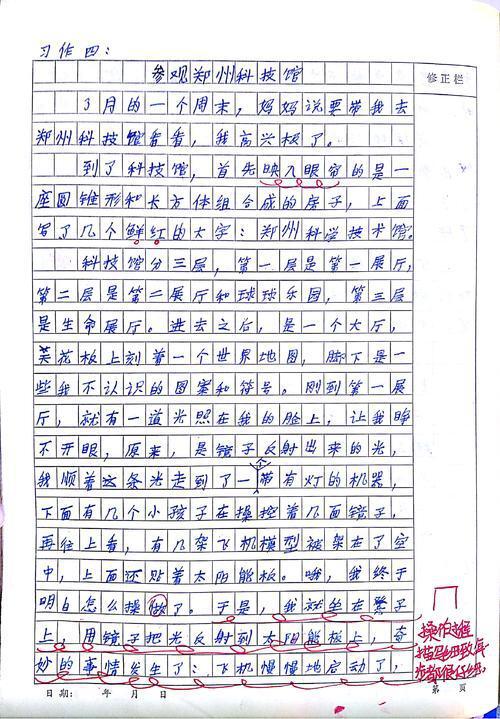 习作四：
参观郑州科技馆
修正栏
3月的一个周末，妈妈说要带我去
郑州科技馆看看，我高兴极了。
到了科技馆，首先映入眼帘的是一
座圆锥形和长方体组合成的房子，上面
写了几个鲜红的大字：郑州科学技术馆。
科技馆分三层，第一层是第一展厅，
第二层是第二展厅和球球乐园，第三层
是生命展厅。进去之后，是一个大厅，
芙花板上刻着一个世界地图，脚下是一
些我不认识的图案和符号。刚到第一展
厅，就有一道光照在我的脸上，让我睁
不开眼，原来，是镜子反射出来的光，
我顺着这条光走到了一个带有灯的机器，
下面有几个小孩子在操控着几面镜子，
再往上看，有几架飞机模型被架在了空
中，上面还贴着太阳能板。哦，我终于
明白怎么操做了。于是，我就坐在凳子
上，用镜子把光反射到太阳能板上，奇
妙的事情发生了：飞机慢慢地启动了，
操作过程
描写细致
日期： 年 月 日
第 页